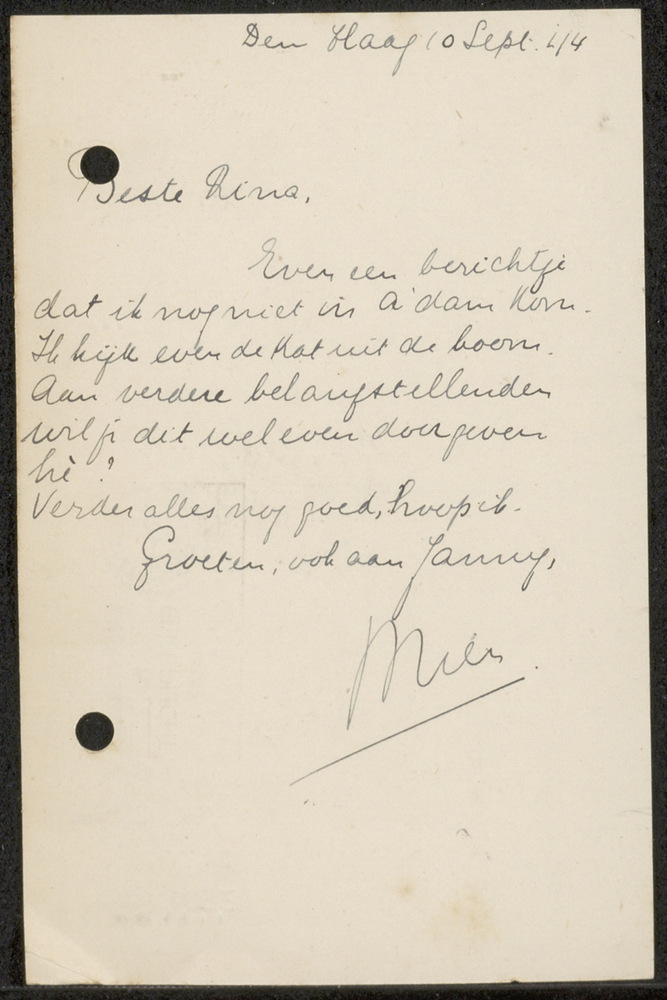 Den Haag 10 Sept. '44
Beste Rina,
Even een berichtje
dat ik nog niet in A'dam kom.
Ik kijk even de kat uit de boom.
Aan verdere belangstellenden
wil je dit wel even doorgeven
hè?
Verder alles nog goed, hoop ik.
Groeten, ook aan Janny,